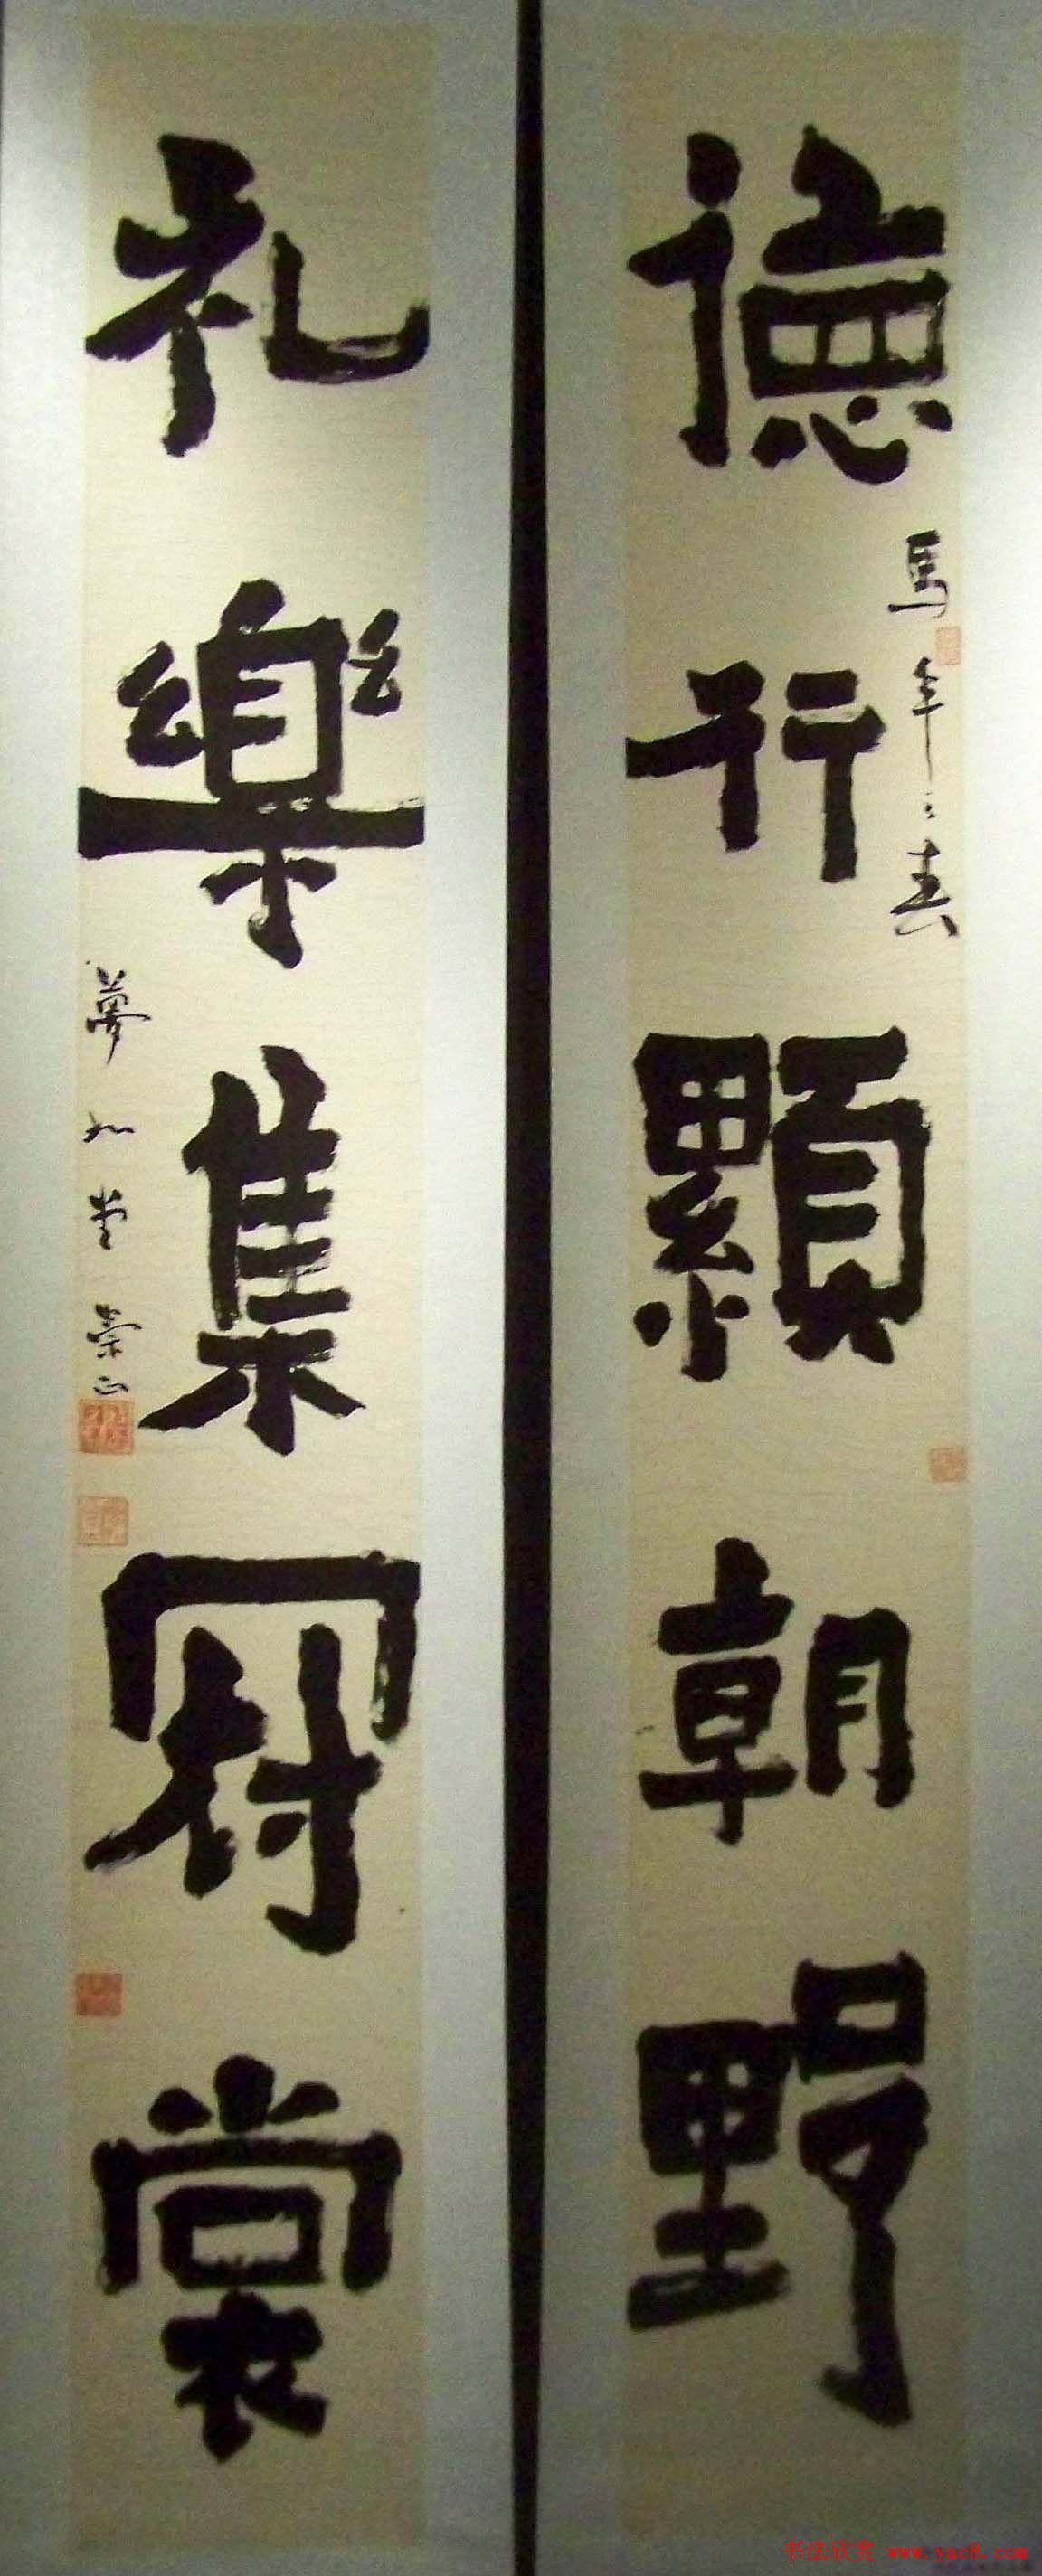 德行顯朝野
馬年之春
礼樂集冠裳
夢和堂榮正
书法欣赏 www.yac8.com